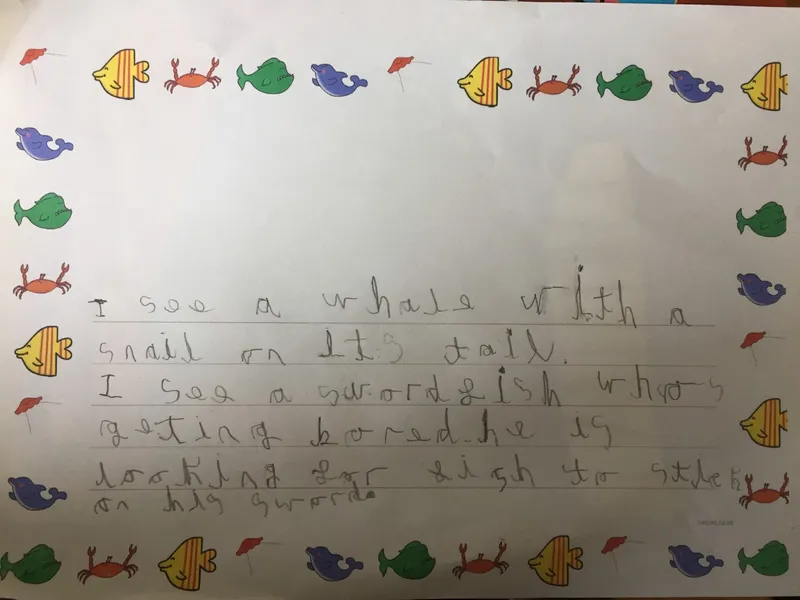 I see a whale with a
snail on its tail.
I see a swordfish whos
geting bored.he is
looking for fish to stick
on his sword.